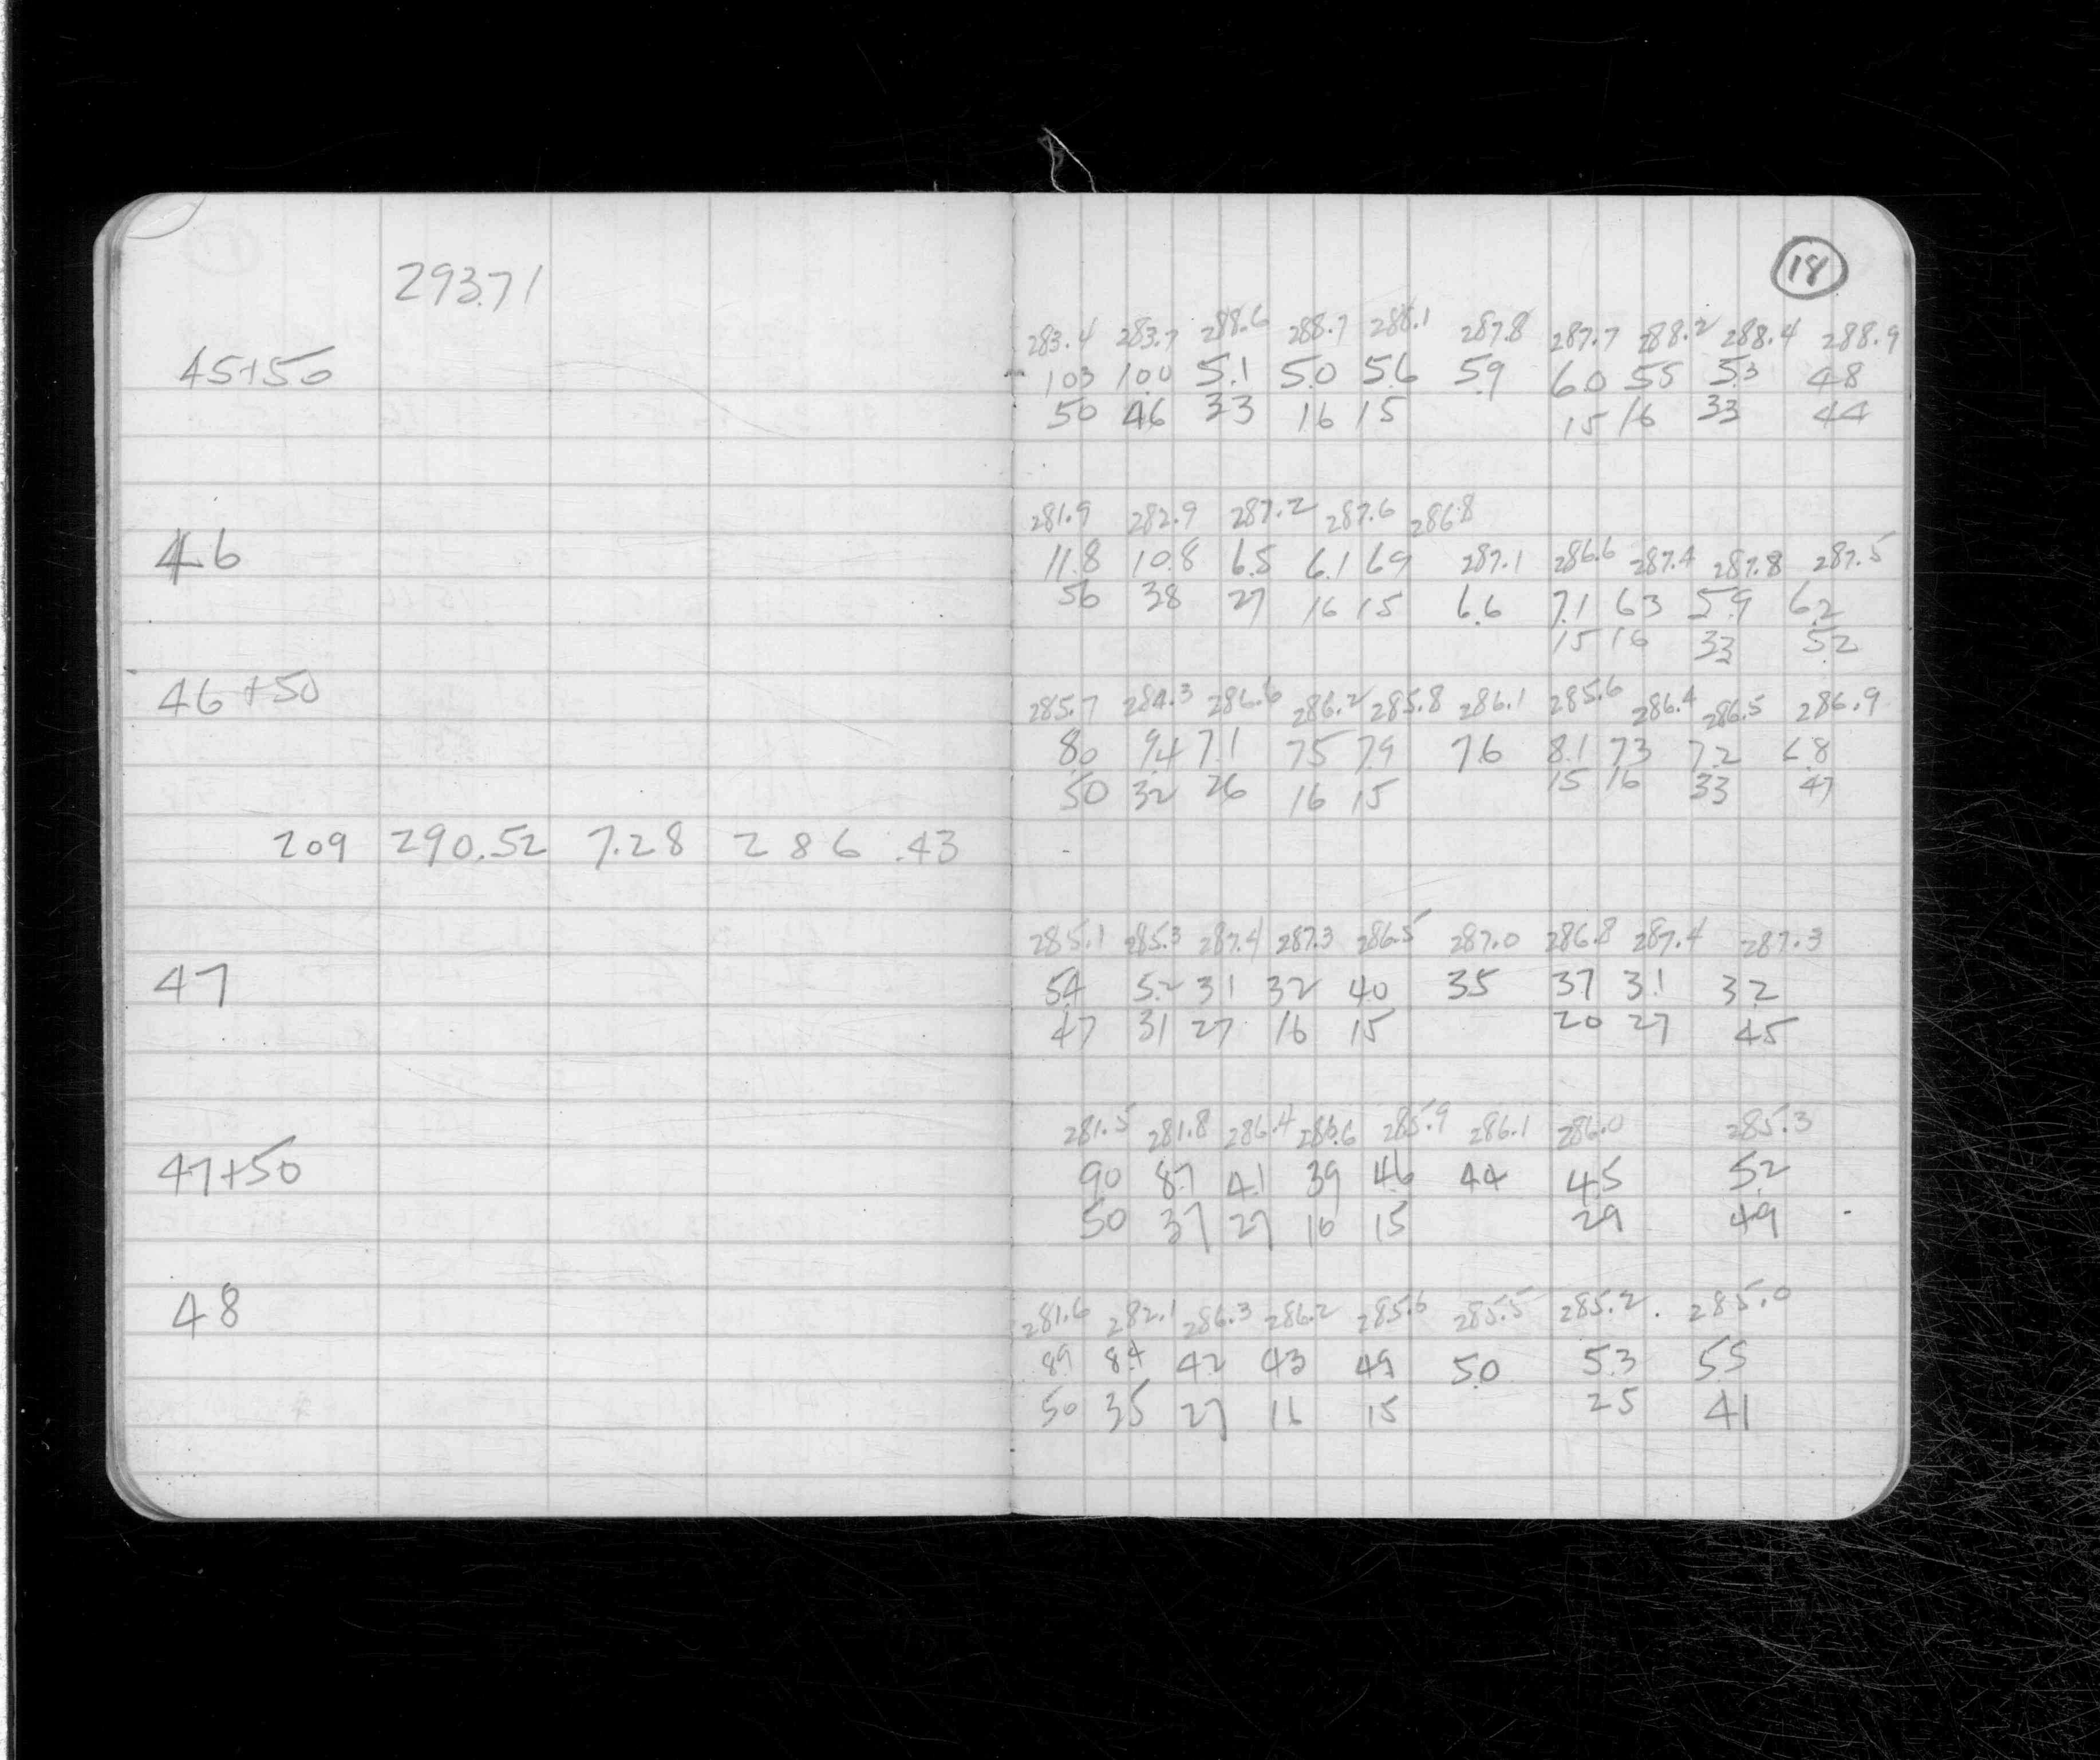 18
293.71
283.4 283.7 288.6 288.7 288.1 287.8 287.7 288.2 288.4 288.9
45+50 103 10.0 5.1 5.0 5.6 5.9 6.0 55 5.3 48
50 46 33 16 15 15 16 33 44
281.9 282.9 287.2 287.6 286.8
46 11.8 10.8 6.5 6.1 69 287.1 286.6 287.4 287.8 287.5
50 38 27 16 15 6.6 7.1 63 5.9 6.2
15 16 33 52
46+50 285.7 284.3 286.6 286.2 285.8 286.1 285.6 286.4 286.5 286.9
8.0 9.4 7.1 75 79 76 8.1 73 7.2 6.8
50 32 26 16 15 15 16 33 47
209 290.52 7.28 286.43
285.1 285.3 287.4 287.3 286.5 287.0 286.8 287.4 287.3
47 5.4 5.2 31 32 40 35 37 3.1 3.2
47 31 27 16 15 20 27 45
281.5 281.8 286.4 286.6 285.9 286.1 286.0 285.3
47+50 90 8.7 4.1 39 46 44 4.5 5.2
50 37 27 16 15 29 49
48 281.6 282.1 286.3 286.2 285.6 285.5 285.2 285.0
89 8.4 42 43 49 5.0 5.3 55
50 35 27 16 15 25 41